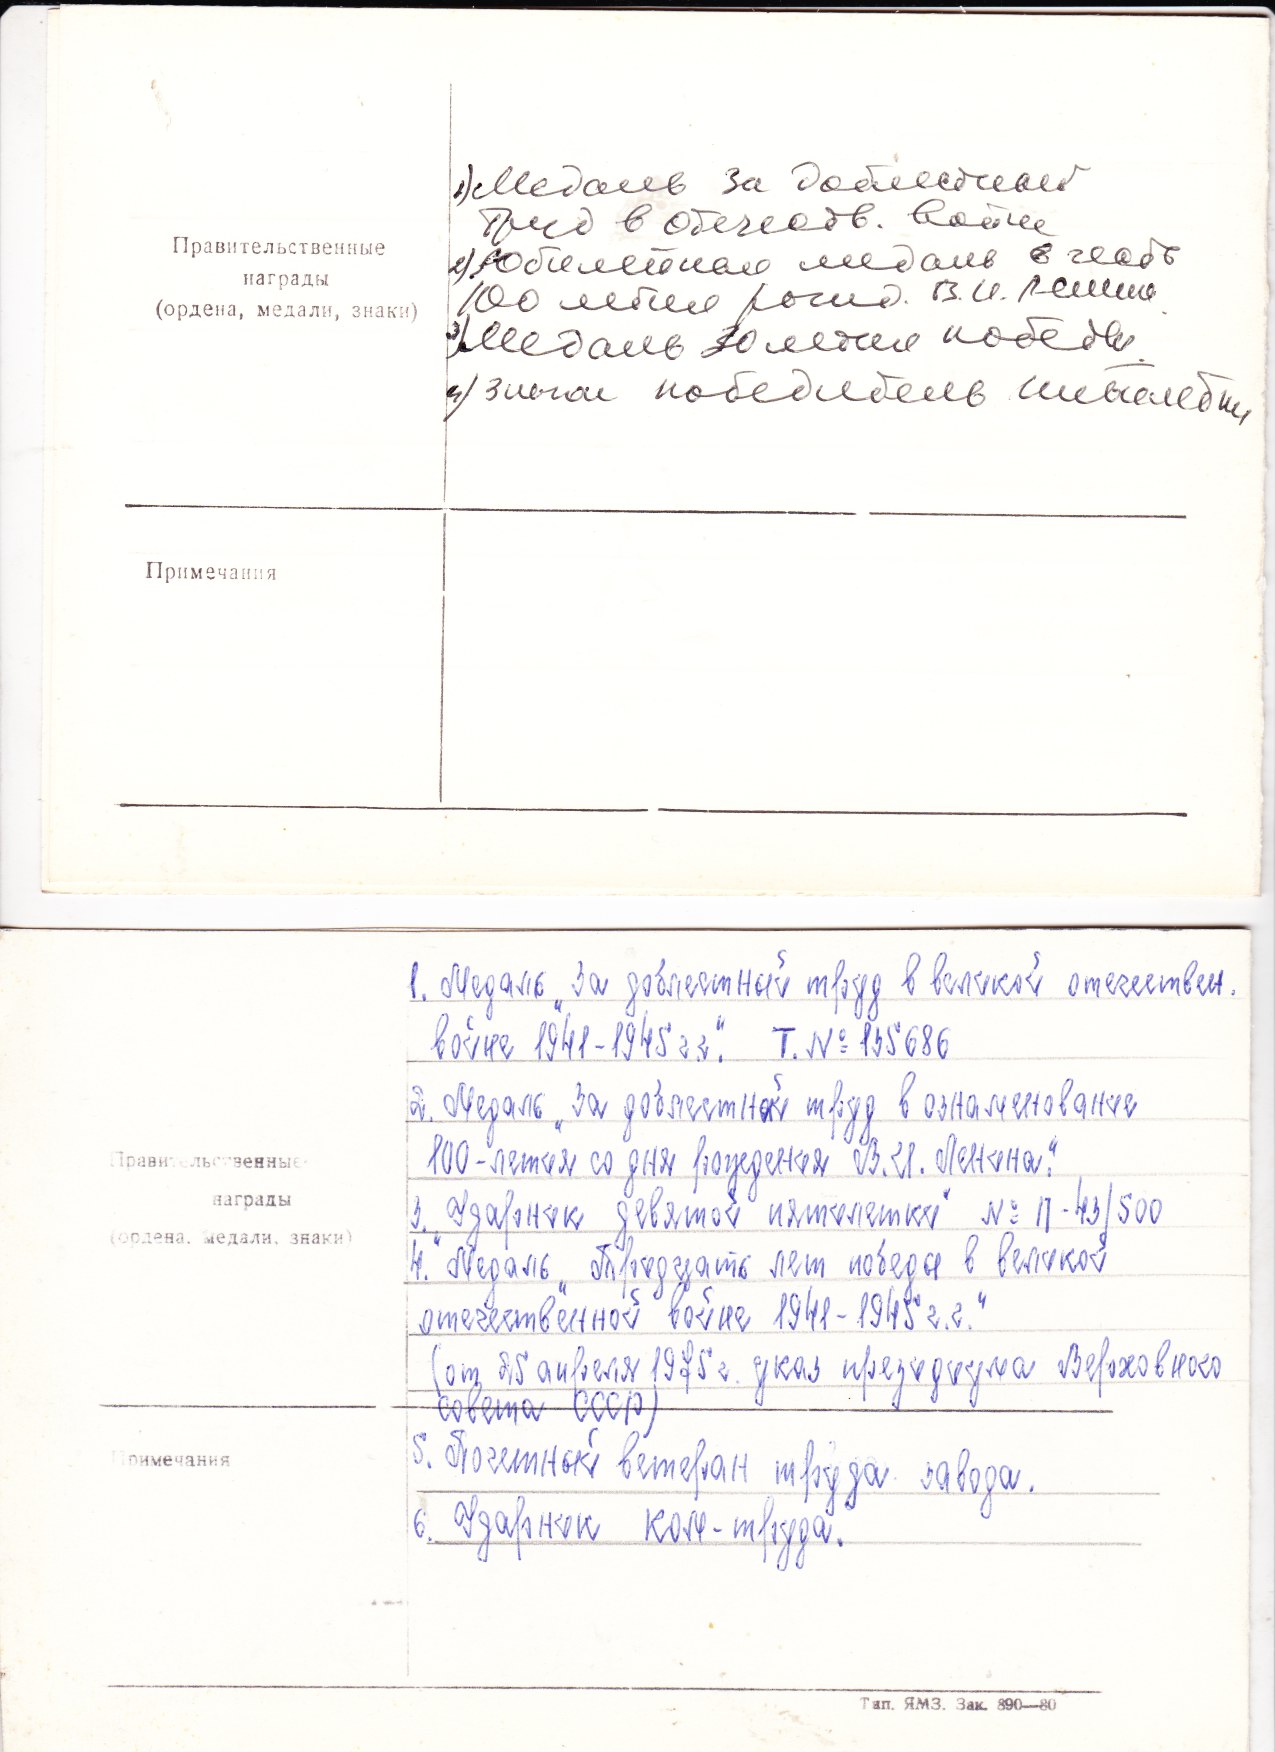 Правительственные
награды
(ордена, медали, знаки)
1) Медаль за доблестный
труд в Отечеств. войне
2) Юбилейная медаль в честь
100 летия рожд. В.И. Ленина.
3) Медаль 30 летия победы.
4) Значок победитель пятилетки
Примечания
1. Медаль „За доблестный труд в великой отечествен.
войне 1941-1945 г г.“ Т. № 135686
2. Медаль „За доблестный труд в ознаменование
100-летия со дня рождения В.И. Ленина.“
Правительственные
награды
(ордена, медали, знаки)
3. „Ударник девятой пятилетки“ № П-43/500
4. Медаль „Тридцать лет победы в великой
отечественной войне 1941-1945 г.г.“
(от 25 апреля 1975 г. указ президиума Верховного
совета СССР)
Примечания
5. Почетный ветеран труда завода.
6. Ударник ком-труда.
Тип. ЯМЗ. Зак. 890—80